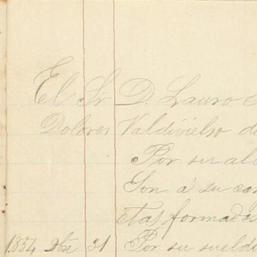 El Sr D. Lauro
Dolores Valdivielso de
Por su al
Son á su co
etas formada
1854 Dbre 31 Por su sueld